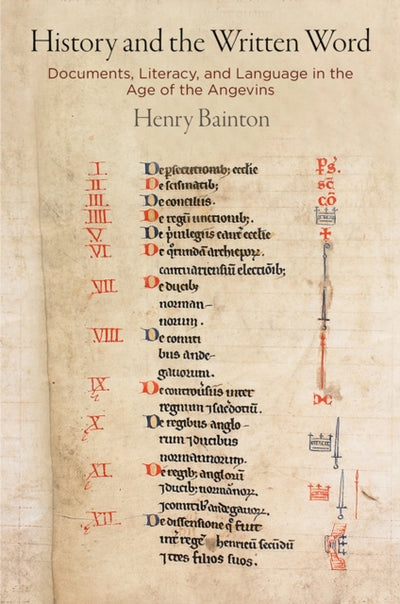 History and the Written Word
Documents, Literacy, and Language in the
Age of the Angevins
Henry Bainton
I. De ꝑsecutionibꝫ ecclie
II De scismatibꝫ
III. De conciliis. cō
IIII. De regū unctionibꝫ.
V. De pͥuilegiis ecclie
VI. De archiepoꝝ.
electionibꝫ
VII. De ducibꝫ
norman-
norum.
VIII. De comiti
bus ande-
gauorum.
IX De inter
regnum ⁊ sacdotiū.
X. De regibus anglo-
rum ⁊ ducibus
normannorum.
XI. De regibꝫ anglorū
⁊ ducibꝫ normānoꝝ.
⁊ comitibꝫ andegauoꝝ.
XII. De dissensione fuit
henricū secūdū
⁊ tres filios suos.